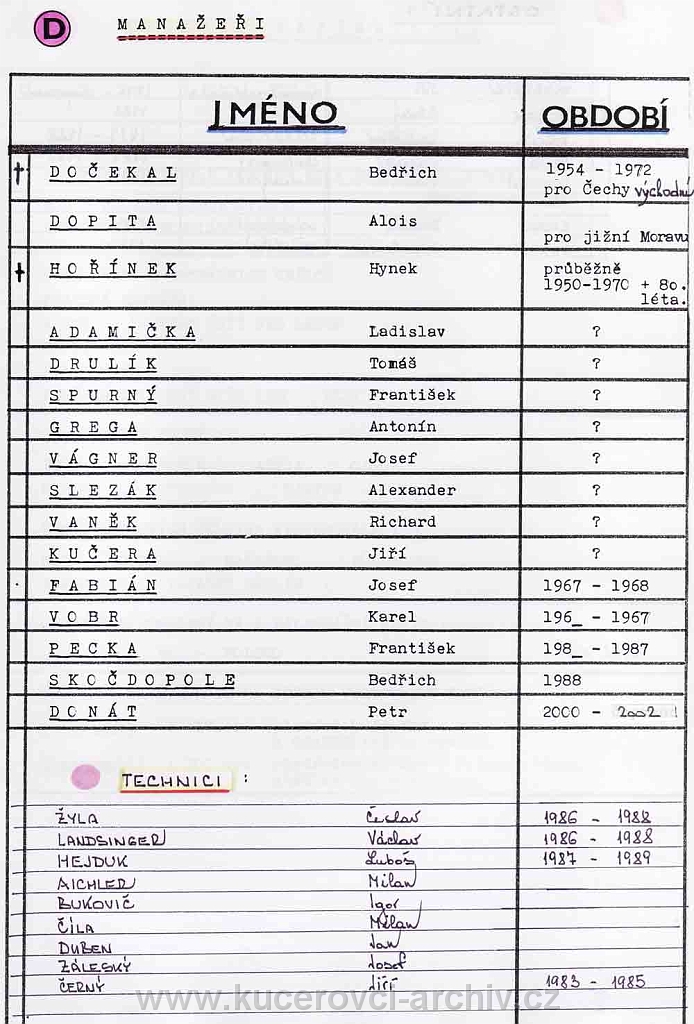 D MANAŽEŘI
JMÉNO OBDOBÍ
† DOČEKAL Bedřich 1954 - 1972
pro Čechy východní
DOPITA Alois
pro jižní Moravu
† HOŘÍNEK Hynek průběžně
1950-1970 + 80.
léta.
ADAMIČKA Ladislav ?
DRULÍK Tomáš ?
SPURNÝ František ?
GREGA Antonín ?
VÁGNER Josef ?
SLEZÁK Alexander ?
VANĚK Richard ?
KUČERA Jiří ?
FABIÁN Josef 1967 - 1968
VOBR Karel 196_ - 1967
PECKA František 198_ - 1987
SKOČDOPOLE Bedřich 1988
DONÁT Petr 2000 - 2002
TECHNICI :
ŽYLA Česlav 1986 - 1988
LANDSINGER Václav 1986 - 1988
HEJDUK Luboš 1987 - 1989
AICHLER Milan
BUKOVIČ Igor
ČÍLA Milan
DUBEN Jan
ZÁLESKÝ Josef
ČERNÝ Jiří 1983 - 1985
www.kucerovci-archiv.cz